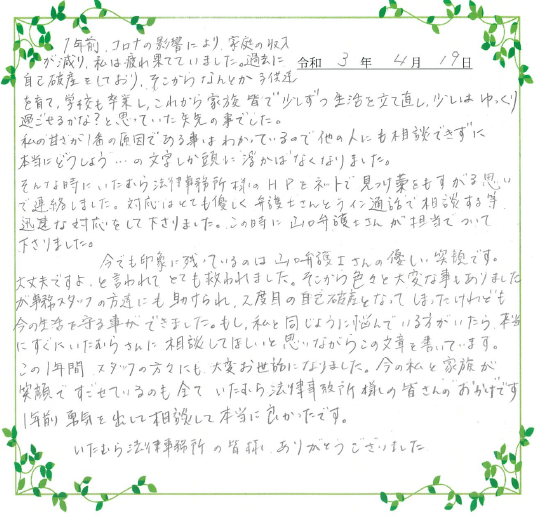 1年前、コロナの影響により、家庭の収入
が減り、私は疲れ果てていました。過去に
令和 3 年 4 月 19 日
自己破産をしており、そこからなんとか子供達
を育て、学校も卒業し、これから家族皆で少しずつ生活を立て直し、少しはゆっくり
過ごせるかな？と思っていた矢先の事でした。
私の甘さが1番の原因である事はわかっているので他の人にも相談できずに
本当にどうしよう…の文字しか頭に浮かばなくなりました。
そんな時にいたむら法律事務所様のHPをネットで見つけ藁をもすがる思い
で連絡しました。対応はとても優しく弁護士さんとライン通話で相談する等
迅速な対応をして下さりました。この時に山口弁護士さんが担当でついて
下さりました。
今でも印象に残っているのは山口弁護士さんの優しい笑顔です。
大丈夫ですよ、と言われてとても救われました。そこから色々と大変な事もありました
が事務スタッフの方達にも助けられ、2度目の自己破産となってしまったけれども
今の生活を守る事ができました。もし、私と同じように悩んでいる方がいたら、本当
にすぐにいたむらさんに相談してほしいと思いながらこの文章を書いています。
この1年間 スタッフの方々にも大変お世話になりました。今の私と家族が
笑顔ですごせているのも全て いたむら法律事務所様の皆さんのおかげです
1年前 勇気を出して相談して本当に良かったです。
いたむら法律事務所の皆様、ありがとうございました